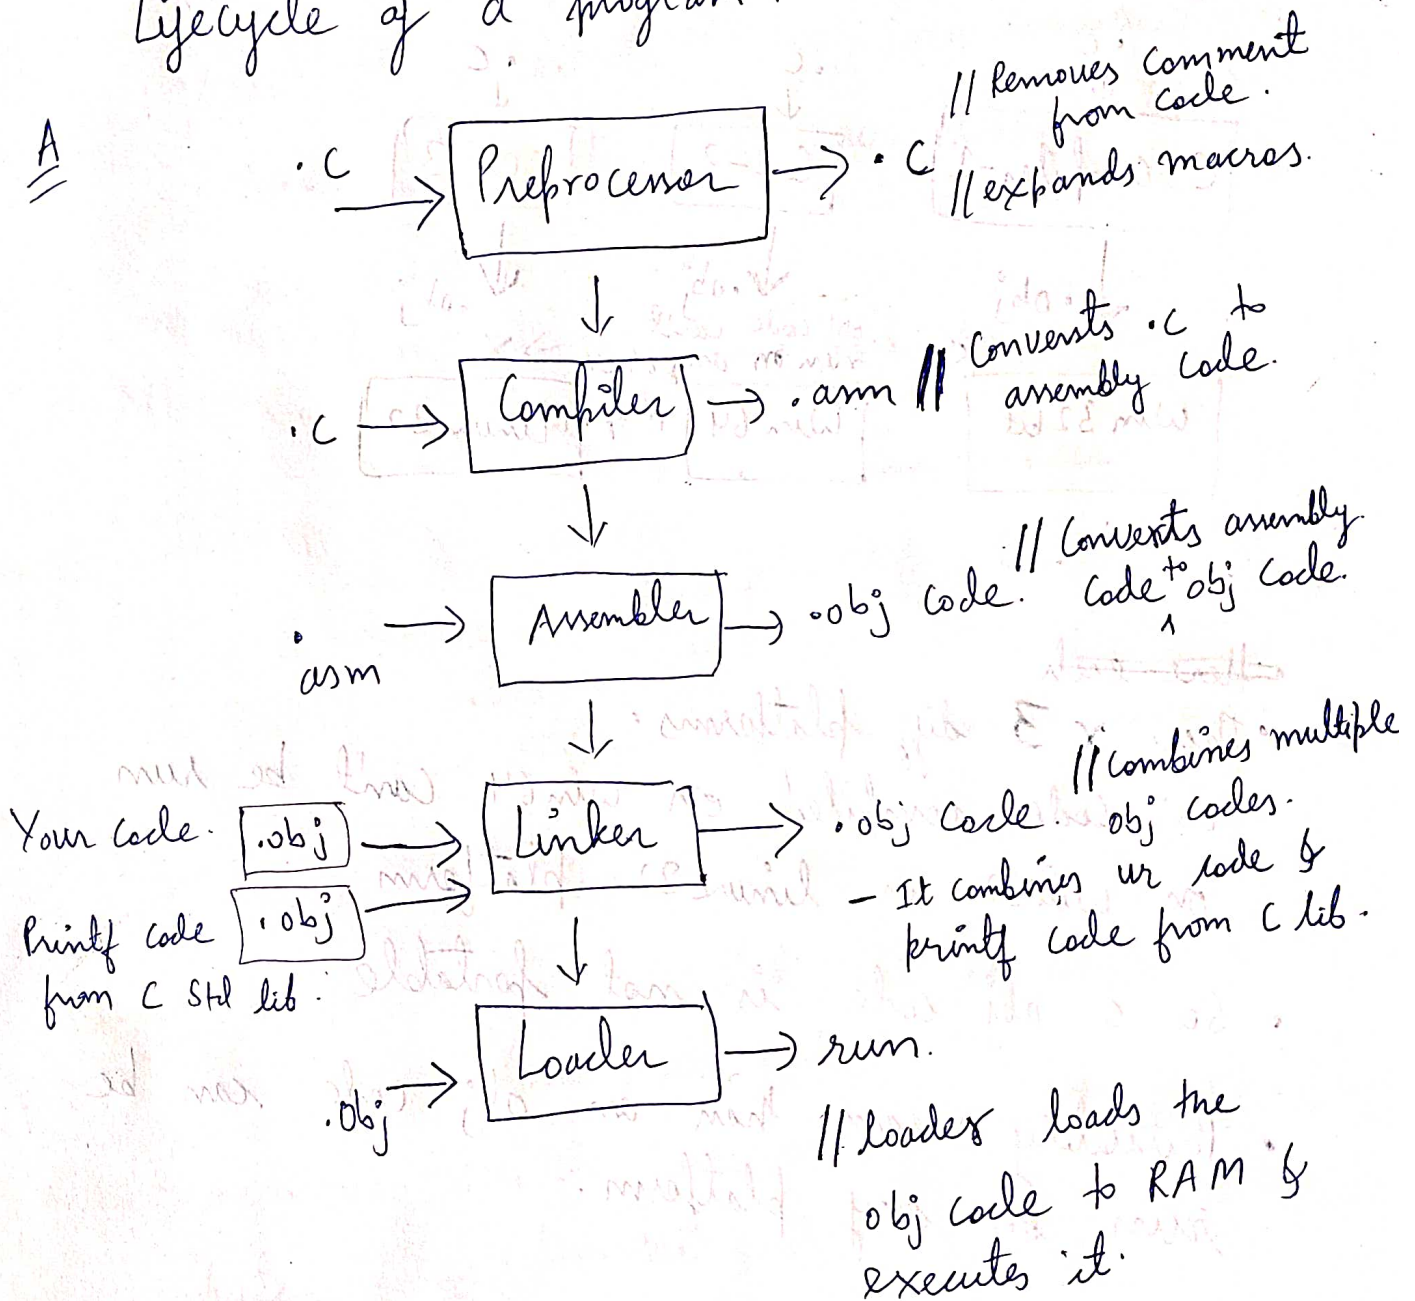 Lifecycle of a program
A
.C
Preprocessor
.C
// Removes Comment
from Code.
// expands macros.
.C
Compiler
.asm
// Conversts .C to
assembly Code.
.asm
Assembler
.obj Code.
// Converts assembly
Code to obj Code.
Your Code.
.obj
Printf Code
from C Std lib.
.obj
Linker
.obj Code.
// Combines multiple
obj codes.
- It combines ur code &
printf code from C lib.
.Obj
Loader
run.
// loader loads the
obj Code to RAM &
executes it.